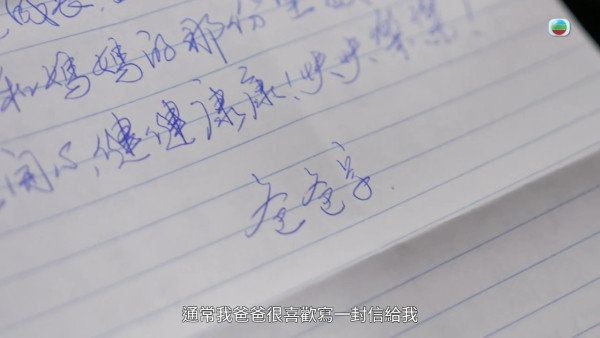 和媽媽的那份
開心,健健康康!快快樂樂!
爸爸字.
通常我爸爸很喜歡寫一封信給我